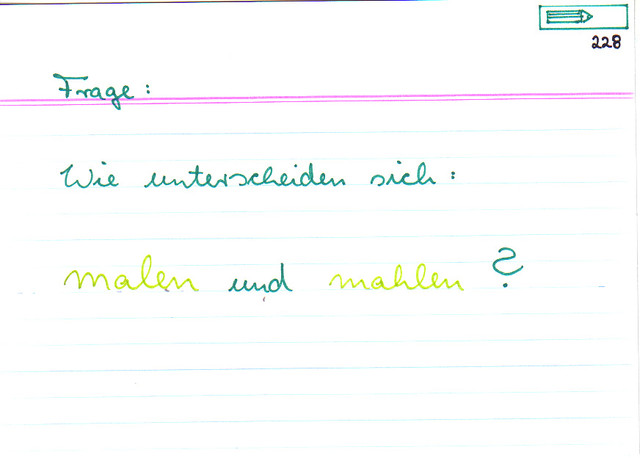 228
Frage:
Wie unterscheiden sich:
malen und mahlen?